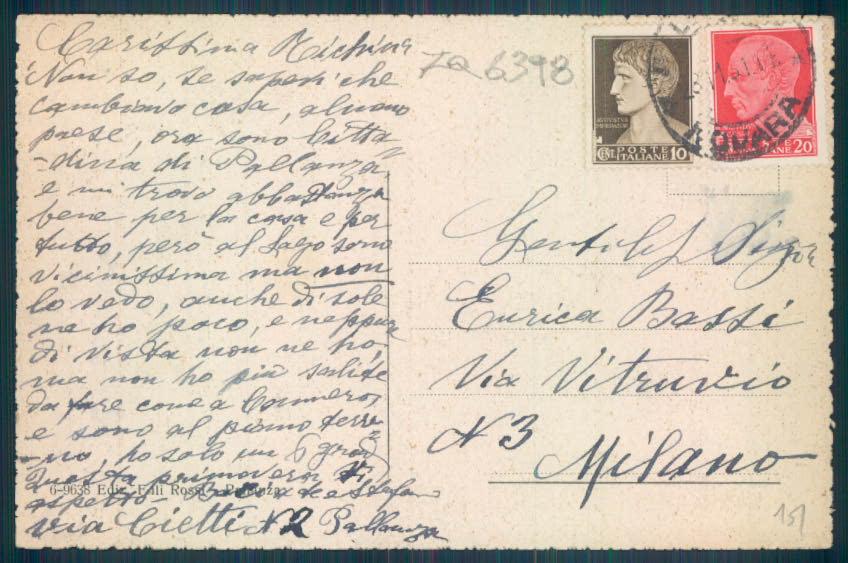 Carissima Richina
Non so, se saprai che
cambiavo casa, al nuovo
paese, ora sono Citta
-dina di Pallanza,
e mi trovo abbastanza
bene per la casa e per
tutto, però al Lago sono
vicinissima ma non
lo vedo, anche di sole
ne ho poco, e neppure
di vista non ne ho,
ma non ho più salite
da fare come a Cannero,
e sono al piano terre=
-no, ho solo un 6 gradi
Questa primavera ti
aspetto
via Cietti N 2 Pallanza
6-9638 Ediz. F.lli Rossi - Pallanza
ZQ 6398
AUGUSTUS
IMPERATOR
CENT. POSTE ITALIANE 10
POSTE ITALIANE 20
NOVARA
Gentil Sigra
Enrica Bassi
Via Vitruvio
N 3
Milano